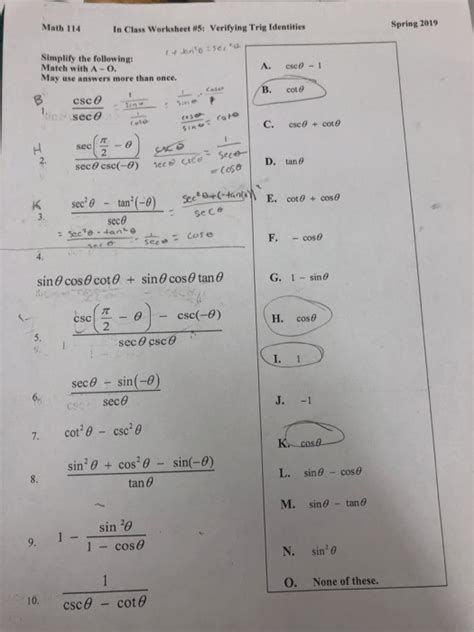 Math 114 In Class Worksheet #5: Verifying Trig Identities Spring 2019
1 + tan²θ = sec²θ
Simplify the following:
Match with A – O.
May use answers more than once.
B
1. cscθ / secθ
H
2. sec(π/2 − θ) / secθ csc(−θ)
cscθ / secθ cscθ = 1 / secθ = cosθ
K
3. sec²θ − tan²(−θ) / secθ
= sec²θ − tan²θ / secθ = 1 / secθ = cosθ
4.
sinθ cosθ cotθ + sinθ cosθ tanθ
5. csc(π/2 − θ) − csc(−θ) / secθ cscθ
6. secθ − sin(−θ) / secθ
7. cot²θ − csc²θ
8. sin²θ + cos²θ − sin(−θ) / tanθ
9. 1 − sin²θ / 1 − cosθ
10. 1 / cscθ − cotθ
A. cscθ − 1
B. cotθ
C. cscθ + cotθ
D. tanθ
E. cotθ + cosθ
F. − cosθ
G. 1 − sinθ
H. cosθ
I. 1
J. −1
K. cosθ
L. sinθ − cosθ
M. sinθ − tanθ
N. sin²θ
O. None of these.